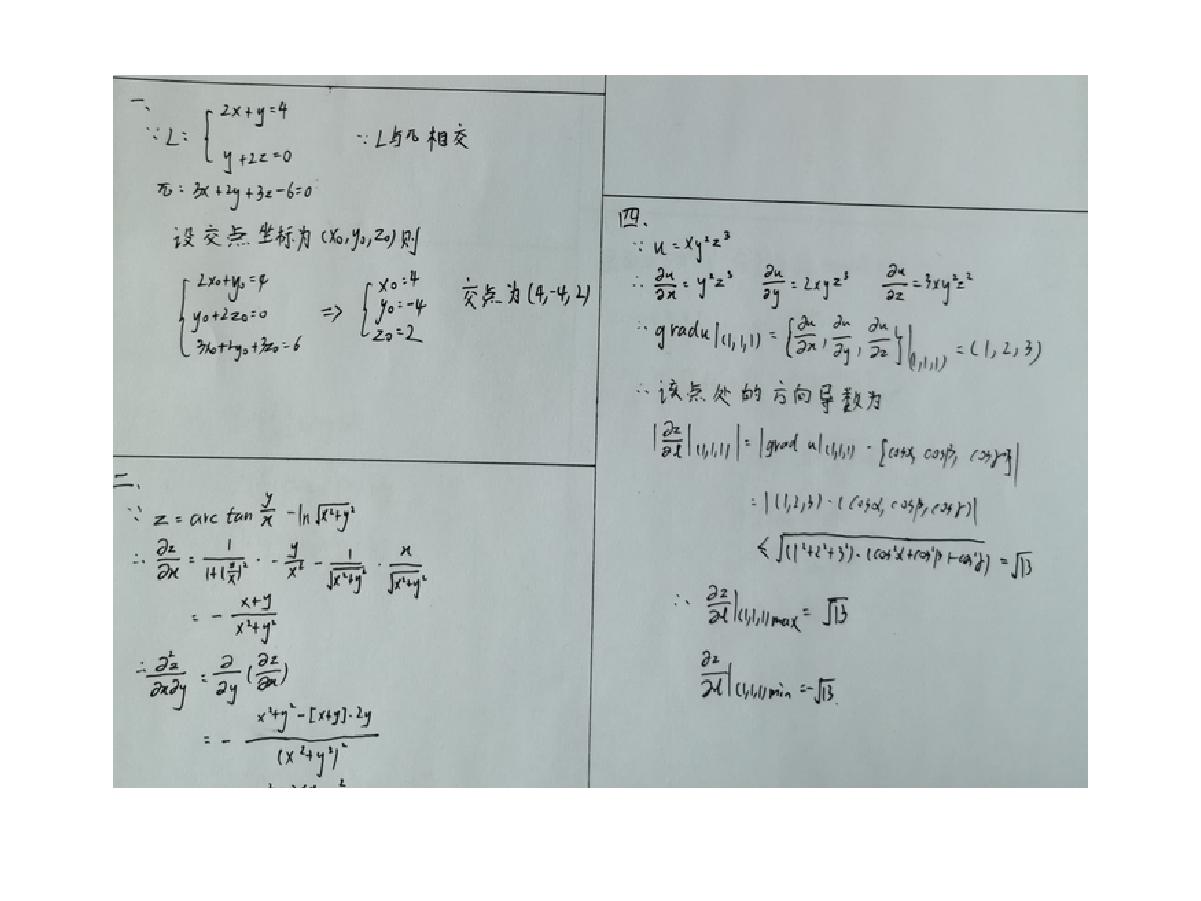 一、
∵ L: { 2x+y=4
y+2z=0 ∵ L与π相交
π: 3x+2y+3z-6=0
设交点坐标为(x₀,y₀,z₀)则
{ 2x₀+y₀=4
y₀+2z₀=0
3x₀+2y₀+3z₀=6 ⇒ { x₀=4
y₀=-4
z₀=2 交点为(4,-4,2)
二、
∵ z=arc tan y/x - ln√(x²+y²)
∴ ∂z/∂x = 1/(1+(y/x)²) · -y/x² - 1/√(x²+y²) · x/√(x²+y²)
= - (x+y)/(x²+y²)
∴ ∂²z/∂x∂y = ∂/∂y (∂z/∂x)
= - (x²+y²-[x+y]·2y)/(x²+y²)²
四.
∵ u=xy²z³
∴ ∂u/∂x=y²z³ ∂u/∂y=2xyz³ ∂u/∂z=3xy²z²
∴ gradu|(1,1,1) = {∂u/∂x, ∂u/∂y, ∂u/∂z}|(1,1,1) = (1,2,3)
∴ 该点处的方向导数为
|∂z/∂l|(1,1,1)| = |grad u|(1,1,1) · [cosα, cosβ, cosγ]|
= |(1,2,3)·(cosα,cosβ,cosγ)|
≤ √((1²+2²+3²)·(cos²α+cos²β+cos²γ)) = √13
∴ ∂z/∂l|(1,1,1)max = √13
∂z/∂l|(1,1,1)min = -√13.